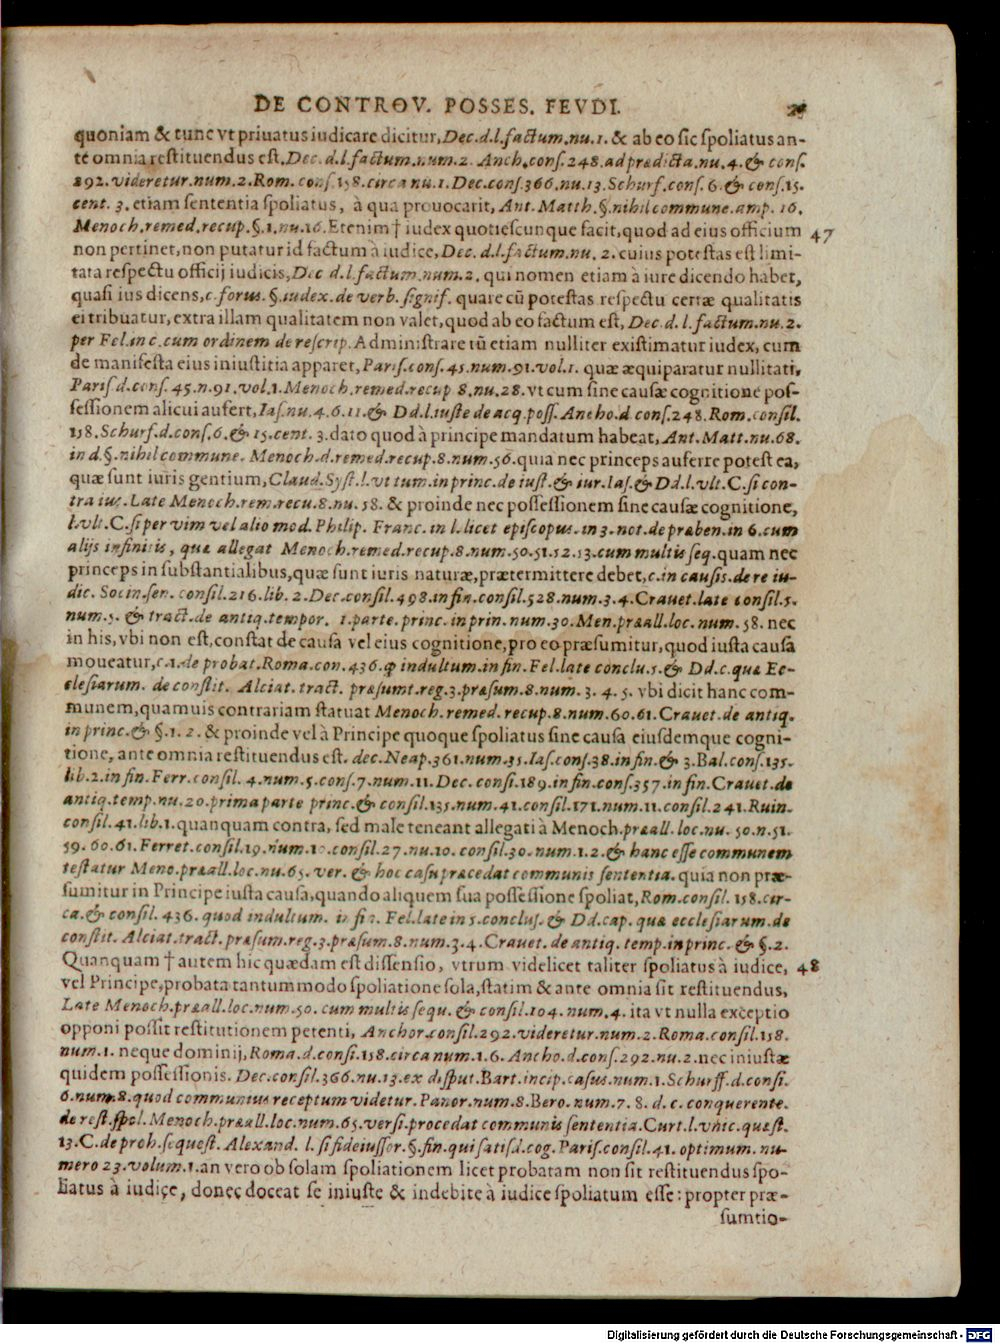 DE CONTROV. POSSES. FEVDI.
quoniam & tunc vt priuatus iudicare dicitur, Dec. d. l. factum. nu. 1. & ab eo sic spoliatus an-
te omnia restituendus est, Dec. d. l. factum. num. 2. Anch. cons. 248. ad prædicta. nu. 4. & cons.
292. videretur. num. 2. Rom. cons. 158. circa nu. 1. Dec. cons. 366. nu. 13. Schurf. cons. 6. & cons. 15.
cent. 3. etiam sententia spoliatus, à qua prouocarit, Ant. Matth. §. nihil commune. amp. 16.
Menoch. remed. recup. §. 1. nu. 16. Etenim † iudex quotiescunque facit, quod ad eius officium 47
non pertinet, non putatur id factum à iudice, Dec. d. l. factum. nu. 2. cuius potestas est limi-
tata respectu officij iudicis, Dec d. l. factum. num. 2. qui nomen etiam à iure dicendo habet,
quasi ius dicens, c. forus. §. iudex. de verb. signif. quare cū potestas respectu certæ qualitatis
ei tribuatur, extra illam qualitatem non valet, quod ab eo factum est, Dec. d. l. factum. nu. 2.
per Fel. in c. cum ordinem de rescrip. Administrare tū etiam nulliter existimatur iudex, cum
de manifesta eius iniustitia apparet, Paris. cons. 45. num. 91. vol. 1. quæ æquiparatur nullitati,
Paris d. cons. 45. n. 91. vol. 1. Menoch. remed. recup 8. nu. 28. vt cum sine causæ cognitione pos-
sessionem alicui aufert, Ias. nu. 4. 6. 11. & Dd. l. iuste de acq. poss. Ancho. d. cons. 248. Rom. consil.
158. Schurf. d. cons. 6. & 15. cent. 3. dato quod à principe mandatum habeat, Ant. Matt. nu. 68.
in d. §. nihil commune. Menoch. d. remed. recup. 8. num. 56. quia nec princeps auferre potest ea,
quæ sunt iuris gentium, Claud. Syst. l. vt tum. in princ. de iust. & iur. Ias. & Dd. l. vlt. C. si con-
tra ius. Late Menoch. rem. recu. 8. nu. 58. & proinde nec possessionem sine causæ cognitione,
l. vlt. C. si per vim vel alio mod. Philip. Franc. in l. licet episcopus. in 3. not. de præben. in 6. cum
alijs infinitis, quæ allegat Menoch. remed. recup. 8. num. 50. 51. 52. 53. cum multis seq. quam nec
princeps in substantialibus, quæ sunt iuris naturæ, prætermittere debet, c. in causis. de re iu-
dic. Socin. sen. consil. 216. lib. 2. Dec. consil. 498. in fin. consil. 528. num. 3. 4. Crauet. late consil. 5.
num. 5. & tract. de antiq. tempor. 1. parte. princ. in prin. num. 30. Men. præall. loc. num. 58. nec
in his, vbi non est, constat de causa vel eius cognitione, pro eo præsumitur, quod iusta causa
moueatur, c. 1. de probat. Roma. con. 436. q indultum. in fin. Fel. late conclu. 5. & Dd. c. quæ Ec-
clesiarum. de constit. Alciat. tract. præsumt. reg. 3. præsum. 8. num. 3. 4. 5. vbi dicit hanc com-
munem, quamuis contrariam statuat Menoch. remed. recup. 8. num. 60. 61. Crauet. de antiq.
in princ. & §. 1. 2. & proinde vel à Principe quoque spoliatus sine causa eiusdemque cogni-
tione, ante omnia restituendus est. dec. Neap. 361. num. 35. Ias. cons. 38. in fin. & 3. Bal. cons. 135.
lib. 2. in fin. Ferr. consil. 4. num. 5. cons. 7. num. 11. Dec. consi. 189. in fin. cons. 357. in fin. Crauet. de
antiq. temp. nu. 20. prima parte princ. & consil. 135. num. 41. consil. 171. num. 11. consil. 241. Ruin.
consil. 41. lib. 1. quanquam contra, sed male teneant allegati à Menoch. præall. loc. nu. 50. n. 51.
59. 60. 61. Ferret. consil. 19. num. consil. 27. nu. 10. consil. 30. num. 1. 2. & hanc esse communem
testatur Meno. præall. loc. nu. 65. ver. & hoc casu præcedat communis sententia. quia non præ-
sumitur in Principe iusta causa, quando aliquem sua possessione spoliat, Rom. consil. 158. cir-
ca. & consil. 436. quod indultum. in fin. Fel. late in 5. conclus. & Dd. cap. quæ ecclesiarum. de
constit. Alciat. tract. præsum. reg. 3. præsum. 8. num. 3. 4. Crauet. de antiq. temp. in princ. & §. 2.
Quanquam † autem hic quædam est dissensio, vtrum videlicet taliter spoliatus à iudice, 48
vel Principe, probata tantummodo spoliatione sola, statim & ante omnia sit restituendus,
Late Menoch. præall. loc. num. 50. cum multis sequ. & consil. 104. num. 4. ita vt nulla exceptio
opponi possit restitutionem petenti, Anchor. consil. 292. videretur. num. 2. Roma. consil. 158.
num. 1. neque dominij, Roma. d. consi. 158. circa num. 1. 6. Ancho. d. cons. 292. nu. 2. nec iniustæ
quidem possessionis. Dec. consil. 366. nu. 13. ex disput. Bart. incip. casus. num. 1. Schurff. d. consi.
6. num. 8. quod communius receptum videtur. Panor. num. 8. Bero. num. 7. 8. d. c. conquerente.
de rest. spol. Menoch. præall. loc. num. 65. versi. procedat communis sententia. Curt. l. vnic. quæst.
13. C. de proh. sequest. Alexand. l. si fideiussor. §. fin. qui satisd. cog. Paris. consil. 41. optimum. nu-
mero 23. volum. 1. an vero ob solam spoliationem licet probatam non sit restituendus spo-
liatus à iudice, donec doceat se iniuste & indebite à iudice spoliatum esse: propter præ-
sumtio-
Digitalisierung gefördert durch die Deutsche Forschungsgemeinschaft - DFG